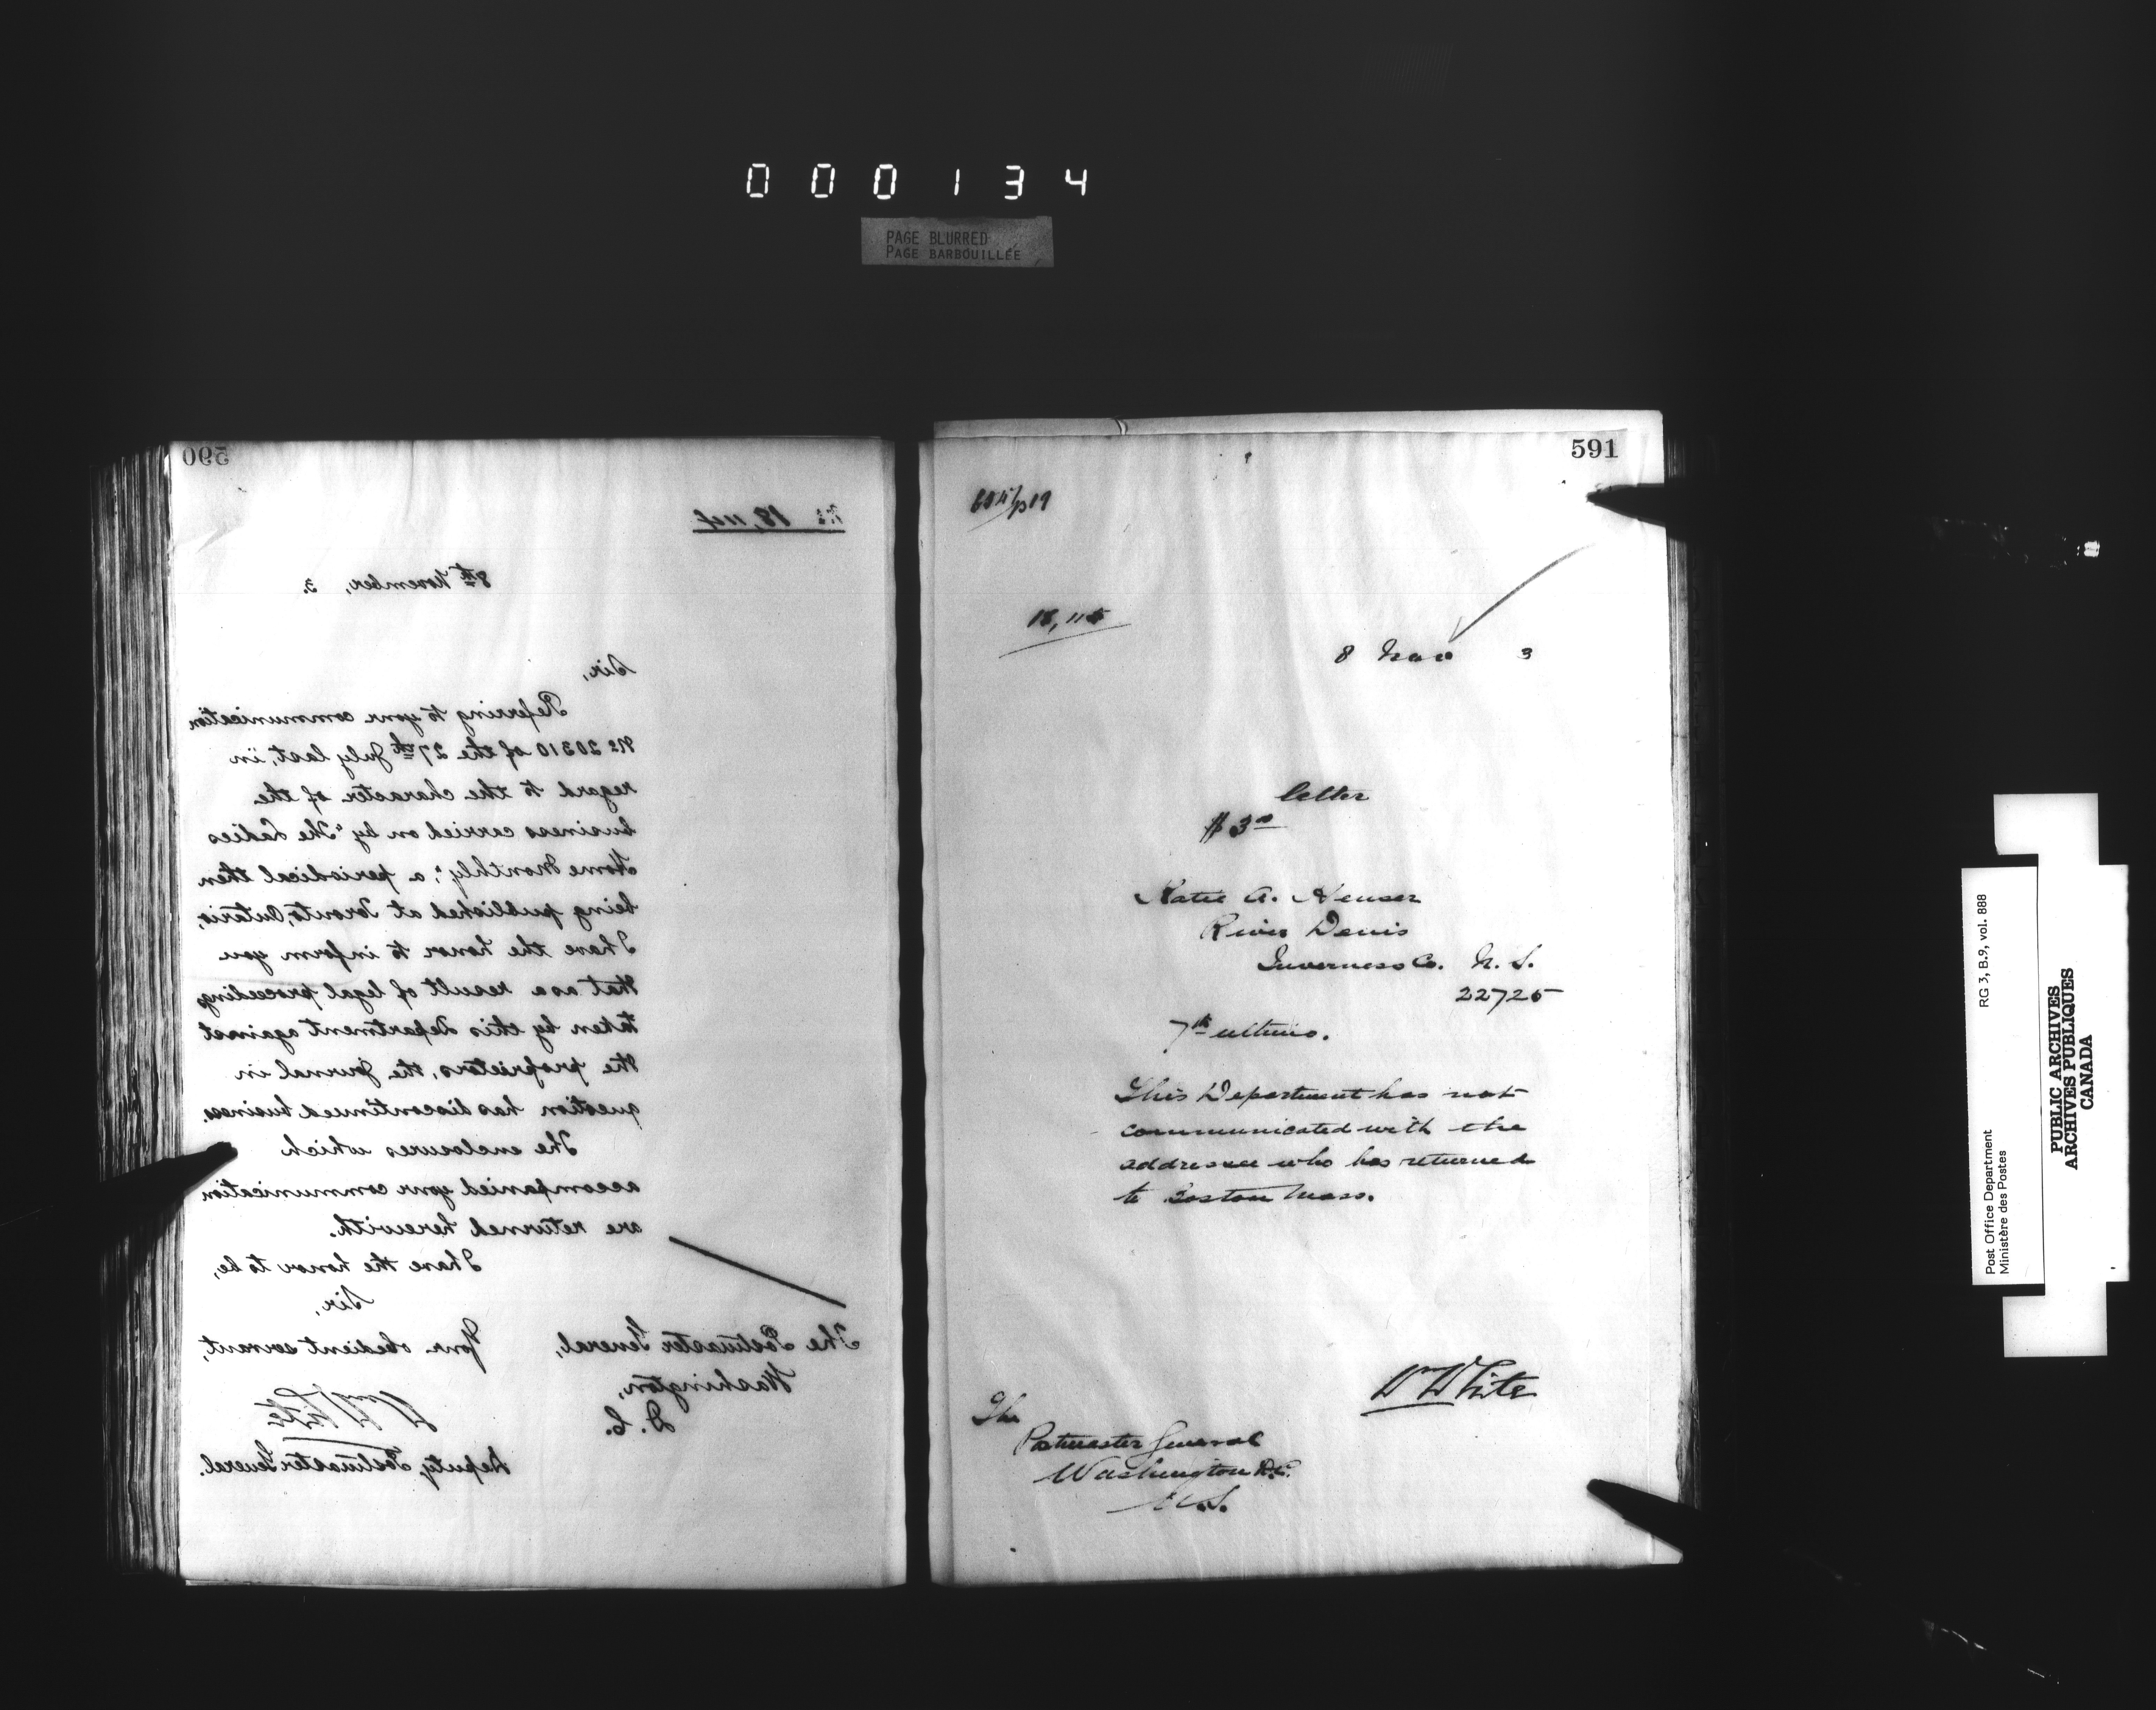 000134
PAGE BLURRED
PAGE BARBOUILLÉE
590
8th November, 3.
Sir,
Referring to your communication
No 20310 of the 27th July last, in
regard to the character of the
business carried on by "The Ladies
Home Monthly", a periodical then
being published at Toronto, Ontario,
I have the honor to inform you
that as a result of legal proceedings
taken by this Department against
the proprietors, the Journal in
question has discontinued business.
The enclosures which
accompanied your communication
are returned herewith.
I have the honor to be,
Sir,
Your obedient servant,
Wm White
Deputy Postmaster General.
The Postmaster General,
Washington,
D. C.
591
18,115
8 Nov 3
letter
$3.00
Katie A.
River Denis
Inverness Co. N. S.
22725
7th ultimo.
This Department has not
communicated with the
addressee who has returned
to Boston Mass.
Wm White
The
Postmaster General
Washington D.C.
U.S.
Post Office Department RG 3, B.9, vol. 888
Ministère des Postes
PUBLIC ARCHIVES
ARCHIVES PUBLIQUES
CANADA